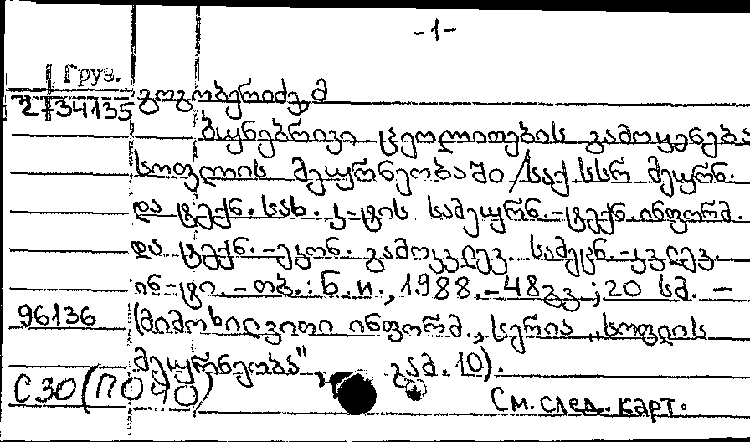 -1-
Груз.
2-34135 გოგობერიძე, მ
ბუნებრივი ცეოლითების გამოყენება
სოფლის მეურნეობაში /საქ.სსრ მეცნ.
და ტექნ. სახ. კ-ტის სამეცნ.-ტექნ. ინფორმ.
და ტექნ.-ეკონ. გამოკვლევ. სამეცნ.-კვლევ.
ინ-ტი. - თბ.: ნ.ი., 1988.-48გვ.; 20 სმ. -
96136 (მიმოხილვითი ინფორმ., სერია „სოფლის
მეურნეობა", გამ. 10).
С30(П040)
См. след. карт.